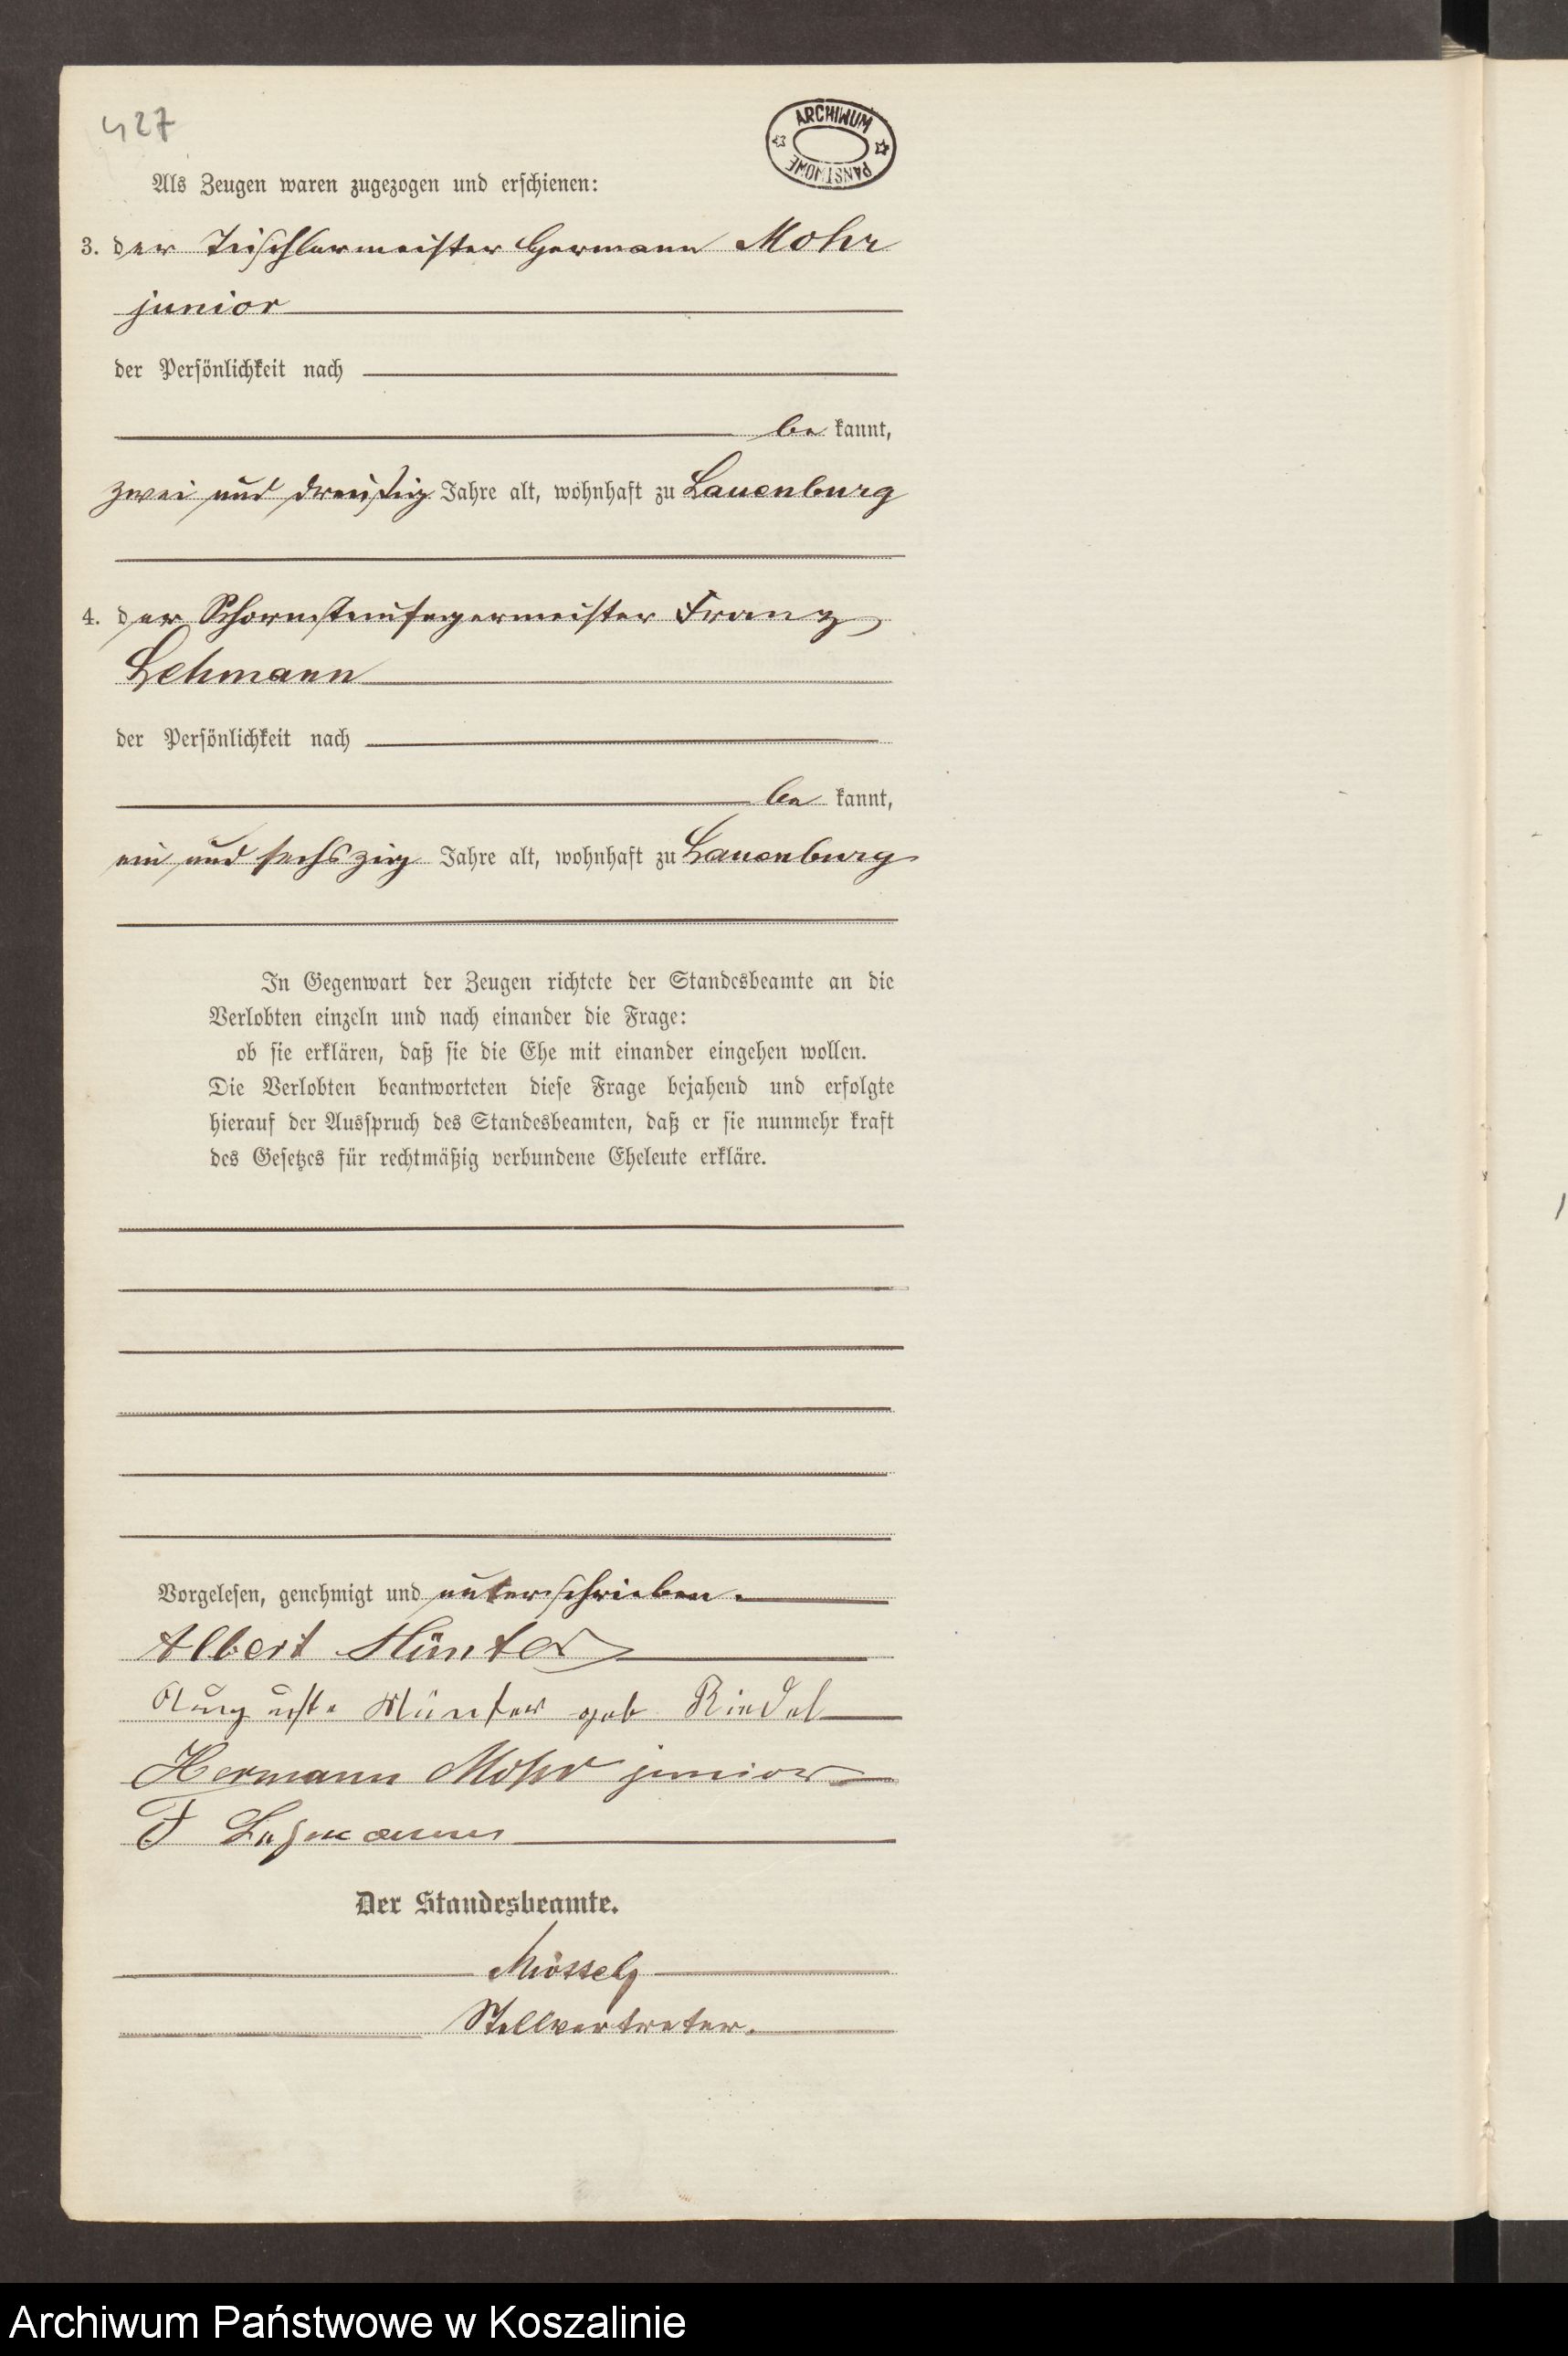 427
ARCHIWUM PAŃSTWOWE
Als Zeugen waren zugezogen und erschienen:
3. der Tischlermeister Hermann Mohr
junior
der Persönlichkeit nach
be kannt,
zwei und dreißig Jahre alt, wohnhaft zu Lauenburg
4. der Schornsteinfegermeister Franz
Lehmann
der Persönlichkeit nach
be kannt,
ein und sechszig Jahre alt, wohnhaft zu Lauenburg
In Gegenwart der Zeugen richtete der Standesbeamte an die
Verlobten einzeln und nach einander die Frage:
ob sie erklären, daß sie die Ehe mit einander eingehen wollen.
Die Verlobten beantworteten diese Frage bejahend und erfolgte
hierauf der Ausspruch des Standesbeamten, daß er sie nunmehr kraft
des Gesetzes für rechtmäßig verbundene Eheleute erkläre.
Vorgelesen, genehmigt und unterschrieben.
Albert Münter
Auguste Münter geb Riedel
Hermann Mohr junior
F Lehmann
Der Standesbeamte.
Stellvertreter.
Archiwum Państwowe w Koszalinie